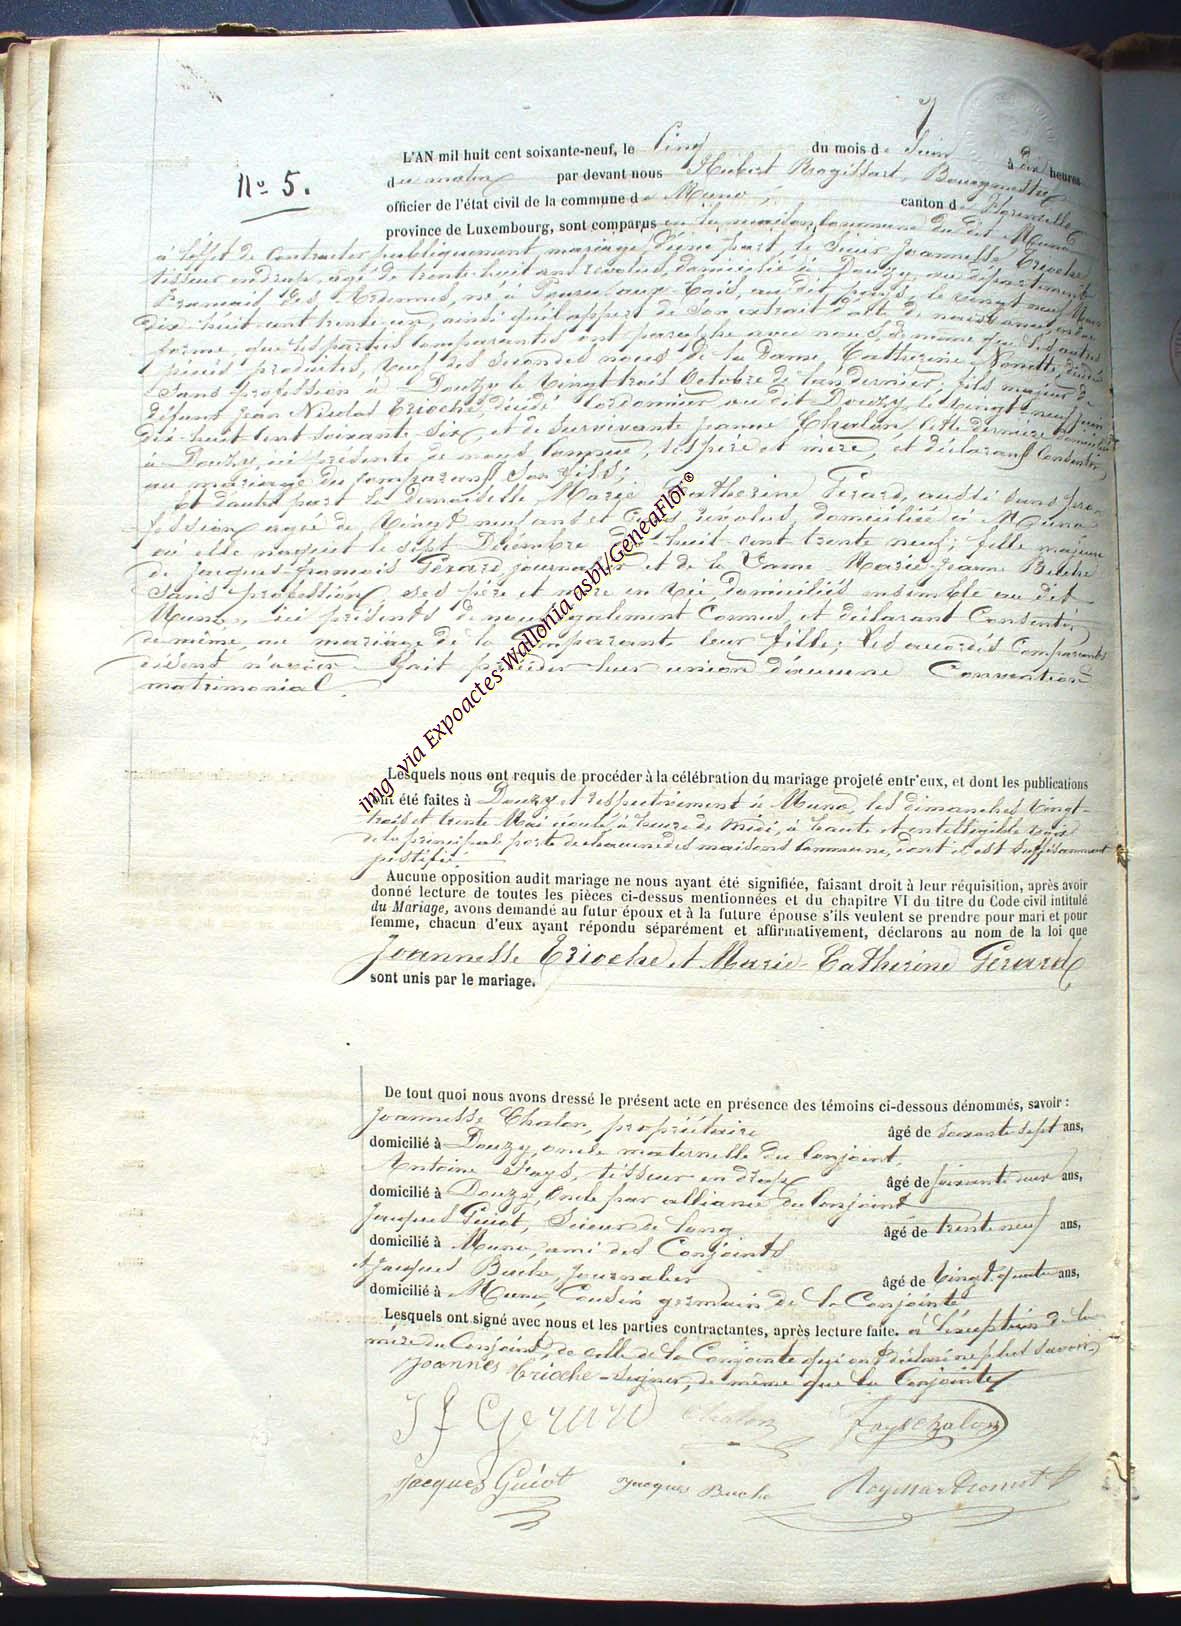 7
N° 5.
L'AN mil huit cent soixante-neuf, le Cinq du mois de Juin à dix heures
du matin par devant nous Hubert Rogissart, Bourgmestre
officier de l'état civil de la commune de Muno, canton de Florenville
province de Luxembourg, sont comparus en la maison Commune du dit Muno
à l'effet de Contracter publiquement mariage, d'une part, le Sieur Joannesse Erioche
tisseur en drap, agé de trente-huit ans révolus, domicilié à Douzy, au département
Français des Ardennes, né à Pouru-aux-bois, au dit pays, le vingt neuf
dix-huit-cent trente-un, ainsi qu'il appert de son extrait d'acte de naissance, en
forme, que les parties comparantes ont paraphé avec nous, de même que les autres
pièces produites, veuf des secondes noces de la Dame Catherine Nonette, décédée
Sans profession à Douzy le vingt trois Octobre de l'an dernier; fils majeur de
défunt Jean Nicolas Erioche, décédé Cordonnier au dit Douzy, le vingt-neuf Juin
dix-huit-cent soixante-six, et de survivante Jeanne Chalon, cette dernière domiciliée
à Douzy, ici présente de nous Connue, ses père et mère, et déclarant Consentir
au mariage du Comparant Son fils;
Et d'autre part la Demoiselle Marie Catherine Gérard, aussi sans pro-
fession, agée de Vingt neuf ans et révolus, domiciliée à Muno
où elle naquit le sept Décembre dix-huit-cent trente neuf; fille majeure
de Jacques-françois Gérard journalier et de la Dame Marie-Jeanne Buche
Sans profession, ses père et mère en vie, domiciliés ensemble au dit
Muno, ici présents de nous également Connus, et déclarant Consentir
de même, au mariage de la Comparante leur fille; les accordés Comparants
disent n'avoir fait précéder leur union d'aucune Convention
matrimonial.
img via Expoactes-Wallonia asbl/GeneaFlor®
Lesquels nous ont requis de procéder à la célébration du mariage projeté entr'eux, et dont les publications
ont été faites à Douzy et respectivement à Muno, les dimanches vingt-
trois et trente Mai écoulé, à heure de Midi, à haute et intelligible voix
de la principale porte de chacune des maisons Commune, dont il est suffisamment
justifié.
Aucune opposition audit mariage ne nous ayant été signifiée, faisant droit à leur réquisition, après avoir
donné lecture de toutes les pièces ci-dessus mentionnées et du chapitre VI du titre du Code civil intitulé
du Mariage, avons demandé au futur époux et à la future épouse s'ils veulent se prendre pour mari et pour
femme, chacun d'eux ayant répondu séparément et affirmativement, déclarons au nom de la loi que
Joannesse Erioche et Marie-Catherine Gérard
sont unis par le mariage.
De tout quoi nous avons dressé le présent acte en présence des témoins ci-dessous dénommés, savoir :
Joannesse Chalon, propriétaire âgé de soixante sept ans,
domicilié à Douzy, oncle maternelle du Conjoint,
Antoine Fays, tisseur en drap âgé de soixante deux ans,
domicilié à Douzy, Oncle par alliance du Conjoint
Jacques Guiot, Scieur de long âgé de trente neuf ans,
domicilié à Muno, ami des Conjoints
et Jacques Buche, Journalier âgé de Vingt-quatre ans,
domicilié à Muno, Cousin germain de la Conjointe
Lesquels ont signé avec nous et les parties contractantes, après lecture faite. à l'exception de la
mère du Conjoint, de celle de la Conjointe qui ont déclaré ne plus savoir
Joannes Erioche signer, de même que la Conjointe
J f Gerard Chalon Fays Chalon
Jacques Guiot Jacques Buche Rogissart